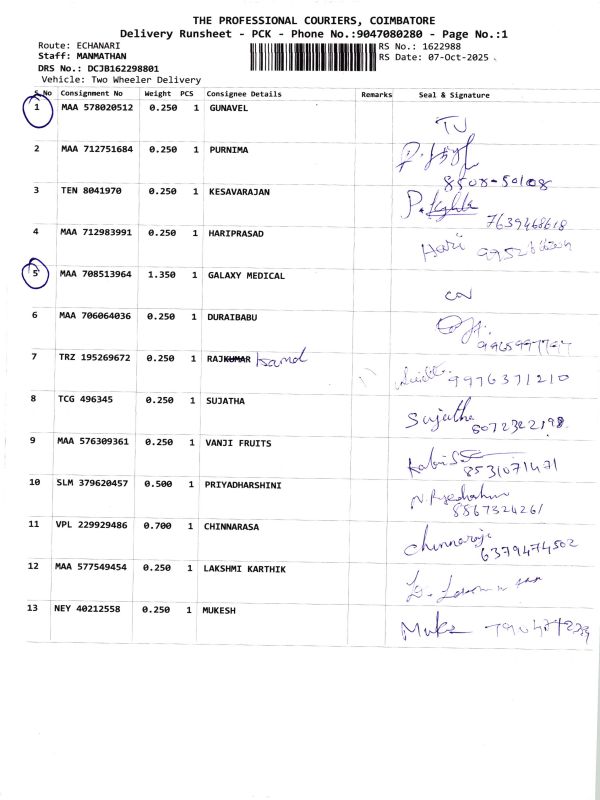 THE PROFESSIONAL COURIERS, COIMBATORE
Delivery Runsheet - PCK - Phone No.:9047080280 - Page No.:1
Route: ECHANARI RS No.: 1622988
Staff: MANMATHAN RS Date: 07-Oct-2025
DRS No.: DCJB162298801
Vehicle: Two Wheeler Delivery
S.No Consignment No Weight PCS Consignee Details Remarks Seal & Signature
1 MAA 578020512 0.250 1 GUNAVEL
2 MAA 712751684 0.250 1 PURNIMA
8508-50108
3 TEN 8041970 0.250 1 KESAVARAJAN
7639468618
4 MAA 712983991 0.250 1 HARIPRASAD Hari
5 MAA 708513964 1.350 1 GALAXY MEDICAL
6 MAA 706064036 0.250 1 DURAIBABU
7 TRZ 195269672 0.250 1 RAJKUMAR 9976371210
8 TCG 496345 0.250 1 SUJATHA Sujatha
9 MAA 576309361 0.250 1 VANJI FRUITS
8531071471
10 SLM 379620457 0.500 1 PRIYADHARSHINI
8567324261
11 VPL 229929486 0.700 1 CHINNARASA Chinnaraja
6379474502
12 MAA 577549454 0.250 1 LAKSHMI KARTHIK
13 NEY 40212558 0.250 1 MUKESH